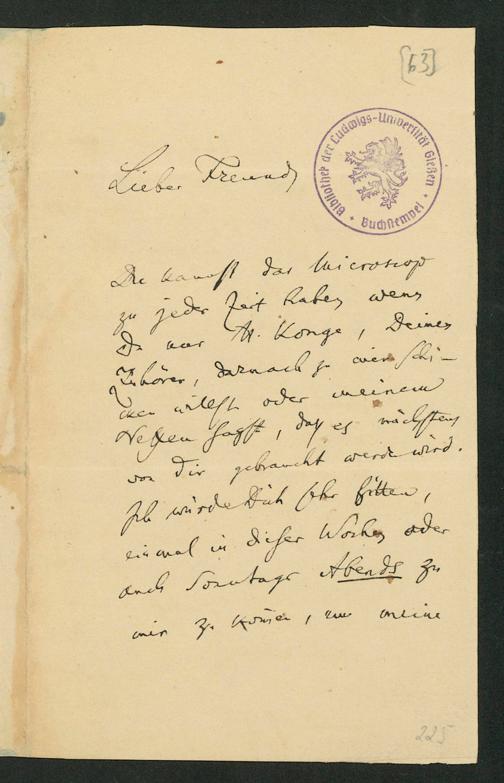 [63]
Bibliothek der Ludwigs-Universität Gießen
Buchstempel
Lieber Freund
Du kannst das Microscop
zu jeder Zeit haben wenn
Du nur H. Konge, Deinen
Zuhörer, darnach zu mir schi-
cken willst oder meinem
Neffen sagst, daß es nächstens
von dir gebraucht werde wird.
Ich würde Dich sehr bitten,
einmal in dieser Woche oder
auch Sonntags Abends zu
mir zu komen, um meine
225